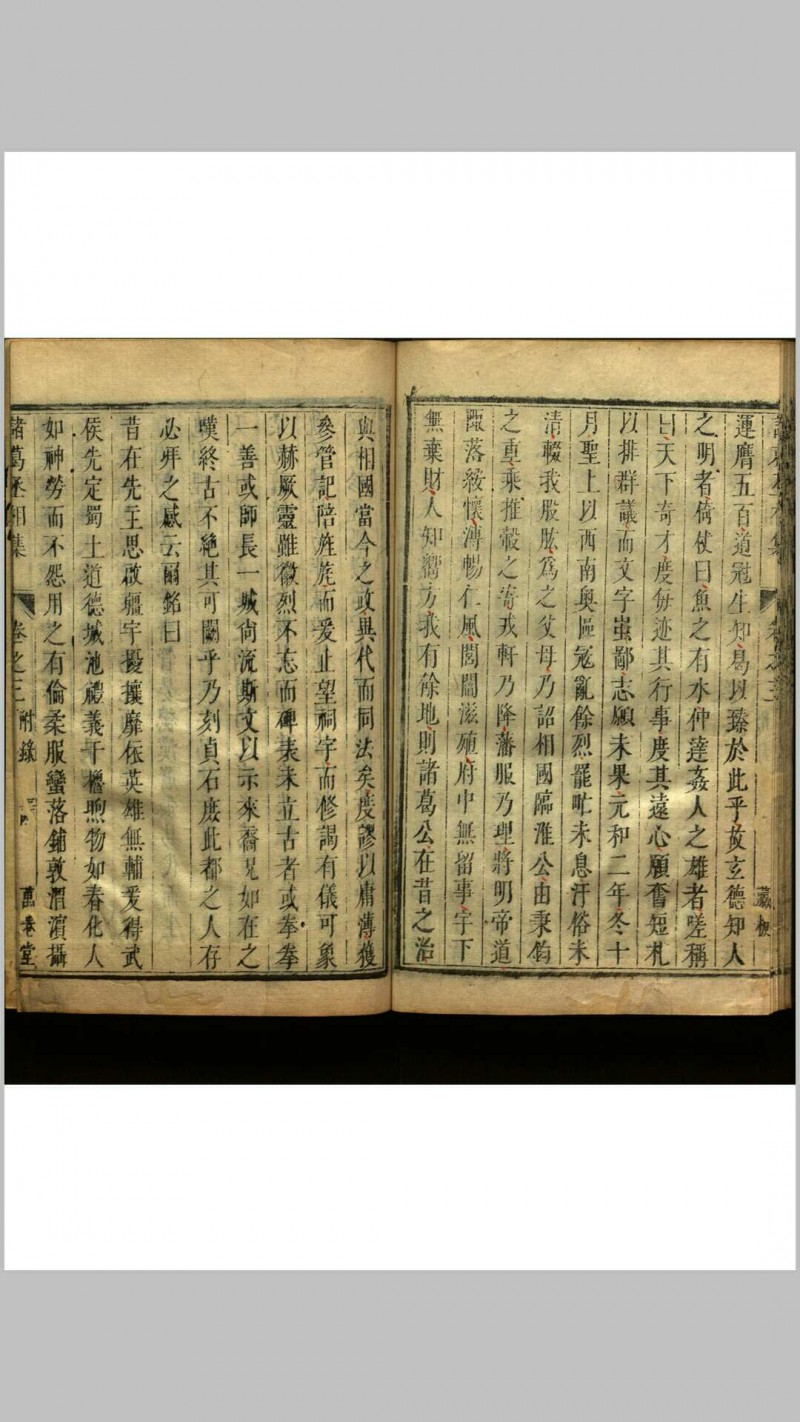 諸葛丞相集 卷之三 藏板
運膺五百道冠生知曷以臻於此乎故玄德知人
之明者倚仗曰魚之有水仲達姦人之雄者嗟稱
曰天下奇才度每迹其行事度其遠心願奮短札
以排群議而文字蚩鄙志願未果元和二年冬十
月聖上以西南奧區寇亂餘烈罷甿未息汙俗未
清輟我股肱為之父母乃詔相國臨淮公由秉鈞
之重乘推轂之寄戎軒乃降藩服乃理將明帝道
陬落綏懷溥暢仁風閭閻滋殖府中無留事宇下
無棄財人知嚮方我有餘地則諸葛公在昔之治
與相國當今之政異代而同法矣度謬以庸薄獲
參管記陪旌旄而爰止望祠宇而修謁有儀可象
以赫厥靈雖徽烈不忘而碑表未立古者或拳拳
一善或師長一城尚流斯文以示來裔况如在之
嘆終古不絕其可闕乎乃刻貞石庶此都之人存
必拜之感云爾銘曰
昔在先主思啟疆宇擾攘靡依英雄無輔爰得武
侯先定蜀土道德城池禮義干櫓煦物如春化人
如神勞而不怨用之有倫柔服蠻落鋪敦渭濱攝
諸葛丞相集 卷之三 附錄 萬卷堂